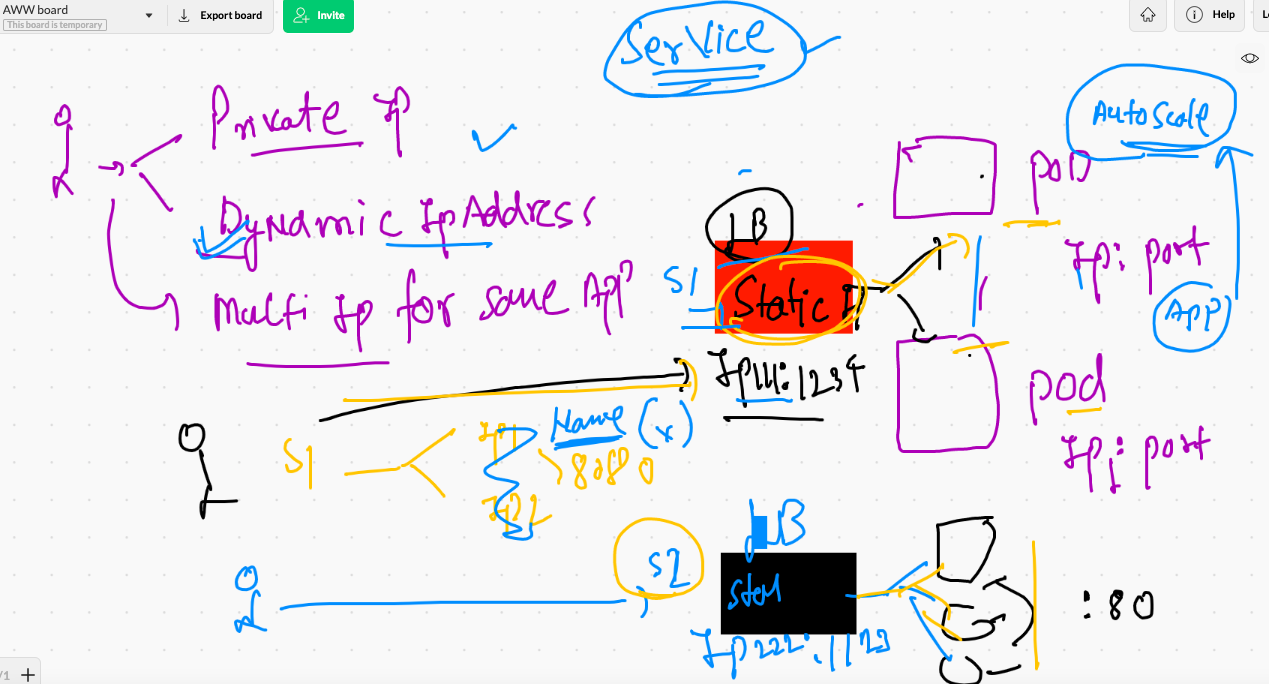 AWW board
This board is temporary
Export board
Invite
Help
Service
AutoScale
Private IP
Dynamic Ip Address
Multi Ip for same App
LB
S1
Static IP
Ip111:1234
POD
Ip: port
App
pod
Ip: port
Name (x)
S1
IP1
8080
IP2
LB
S2
Ip222:1123
:80
/1